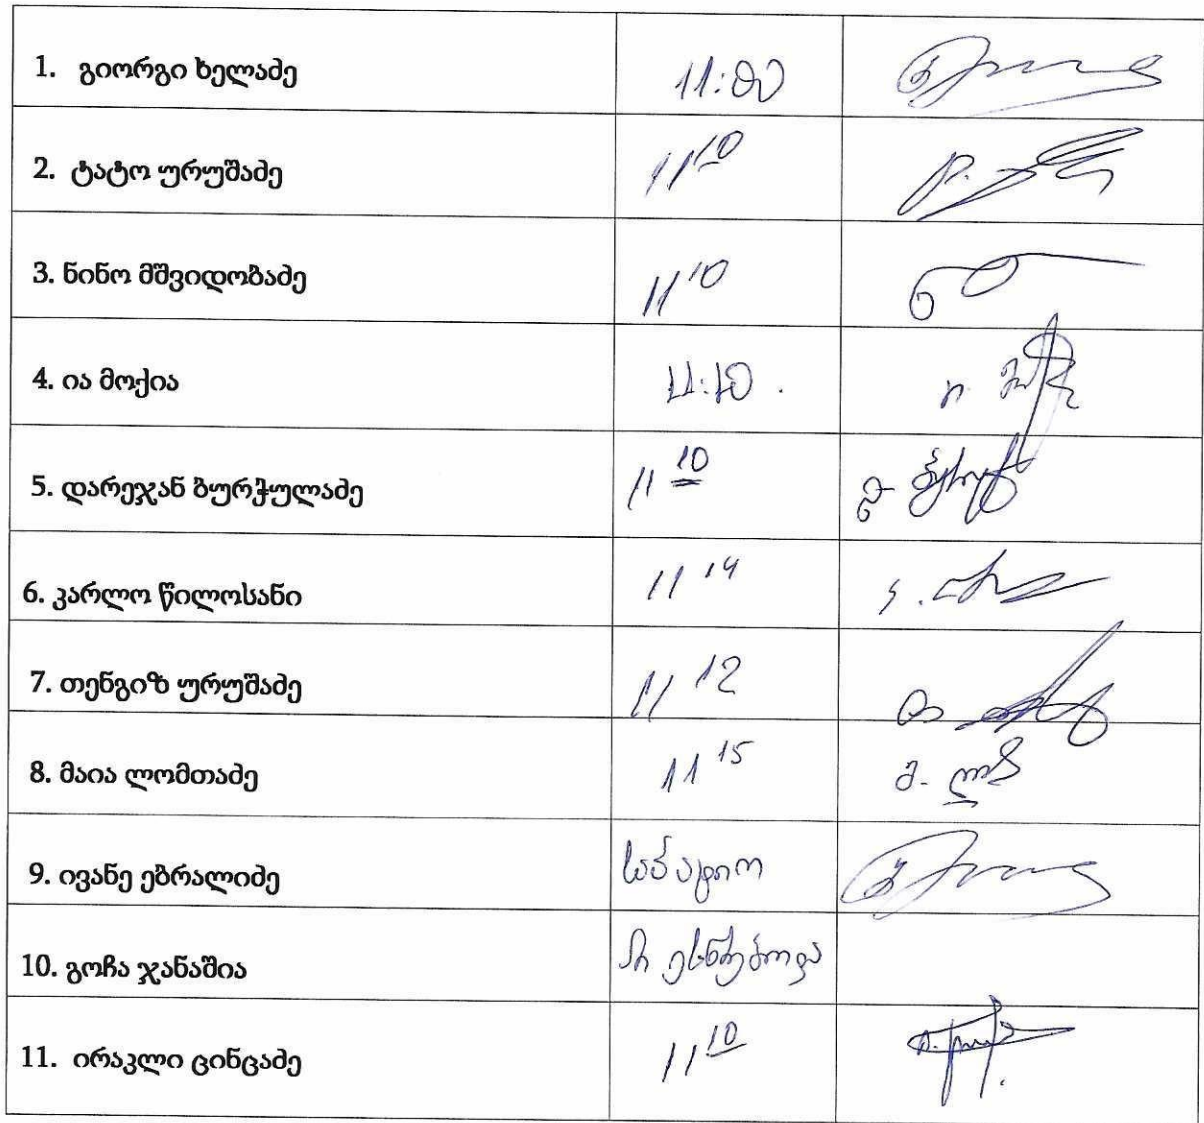 1. გიორგი ხელაძე 11:00
2. ტატო ურუშაძე 11 10
3. ნინო მშვიდობაძე 11 10
4. ია მოქია 11:10.
5. დარეჯან ბურჭულაძე 11 10
6. კარლო წილოსანი 11 14
7. თენგიზ ურუშაძე 11 12
8. მაია ლომთაძე 11 15
9. ივანე ებრალიძე საპატიო
10. გოჩა ჯანაშია არ ესწრებოდა
11. ირაკლი ცინცაძე 11 10